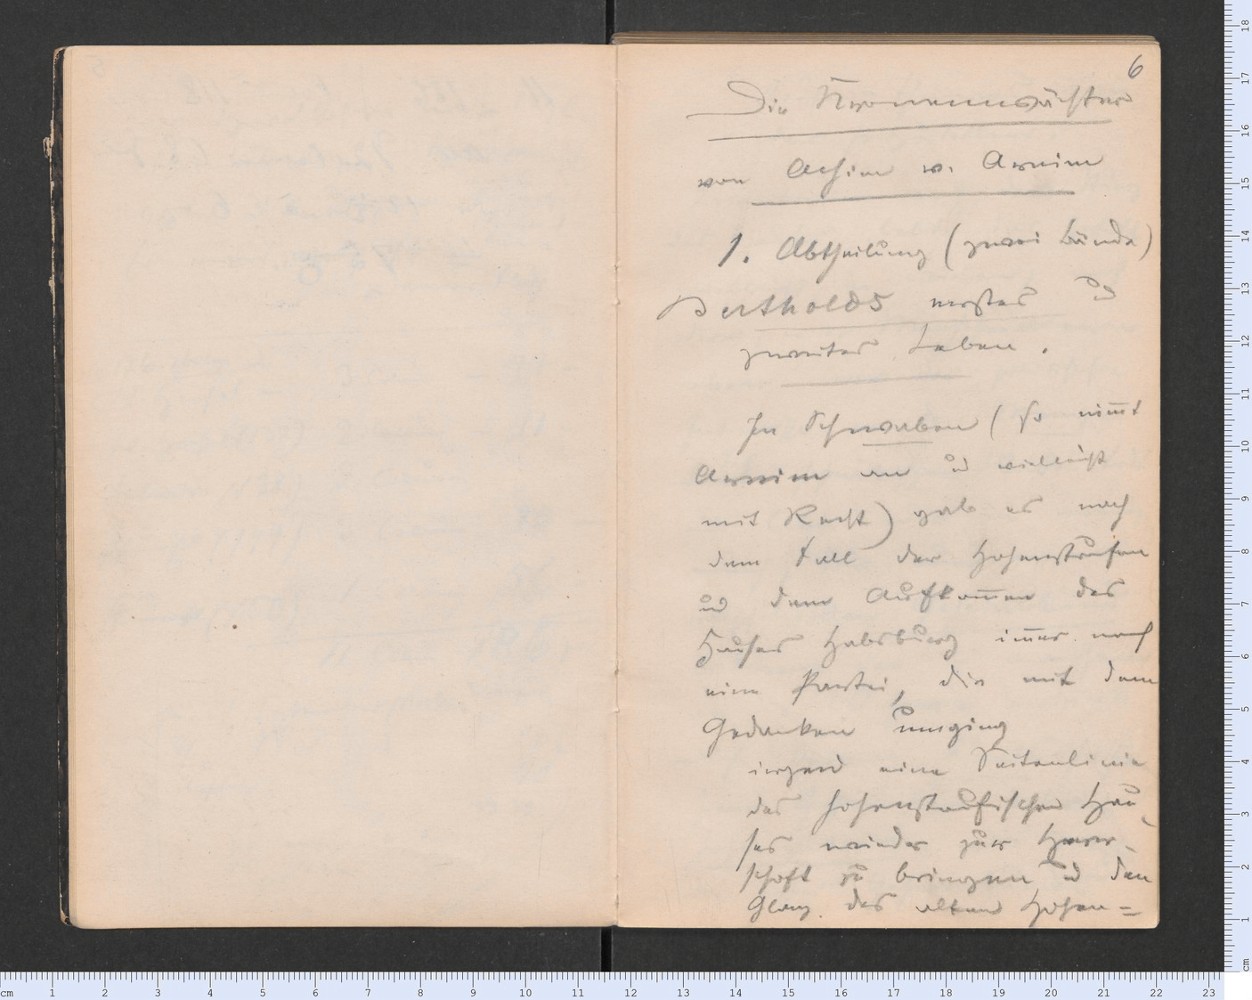 6
Die Kronenwächter
von Achim v. Arnim
1. Abtheilung (zwei Bände)
Bertholds erstes ud
zweites Leben.
In Schwaben (so nim̅t
Arnim an ud vielleicht
mit Recht) gab es nach
dem Fall der Hohenstaufen
ud dem Aufkom̅en des
Hauses Habsburg im̅er noch
eine Partei, die mit dem
Gedanken umging
irgend eine Seitenlinie
des hohenstaufischen Hau-
ses wieder zur Herr-
schaft zu bringen ud den
Glanz des alten Hohen=